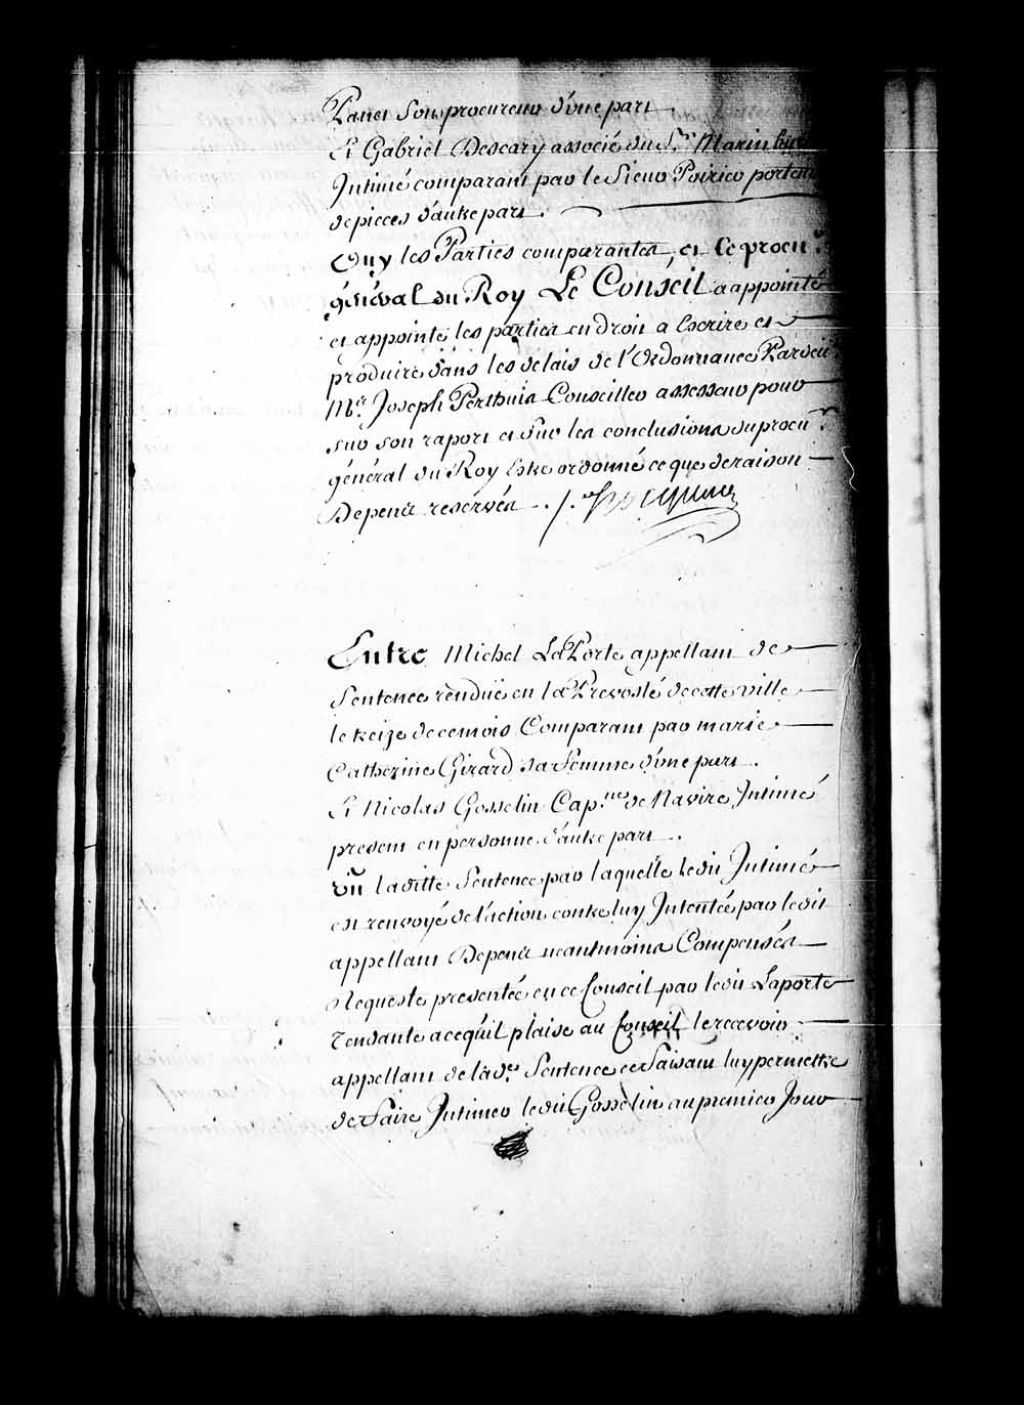 Panet son procureur d'une part
Et Gabriel Descary associé du Sr. Marin
Intimé comparant par le Sieur Poirier porteur
de pieces d'autre part.
Ouy les Parties comparantes, et le procur
général du Roy Le Conseil a appointé
et appointe les parties en droit a Escrire et
produire dans les delais de l'Ordonnance Pardevt
Mr. Joseph Perthuis Conseiller assesseur pour
sur son raport et sur les conclusions du procur
général du Roy Estre ordonné ce que de raison
Depens reservés.
Entre Michel La Porte appellant de
Sentence rendüe en la Prevosté de cette ville
le treize de ce mois Comparant par marie
Catherine Girard sa femme d'une part.
Et Nicolas Gosselin Cap.ne de Navire, Intimé
present en personne d'autre part.
Vû laditte Sentence par laquelle ledit Intimé
est renvoyé de l'action contre luy Intentée par ledit
appellant Depens neantmoins Compensés
Requeste presentée en ce Conseil par ledit Laporte
Tendante a ce qu'il plaise au Conseil le recevoir
appellant de lad.e Sentence ce faisant luy permettre
de faire Intimer ledit Gosselin au premier Jour